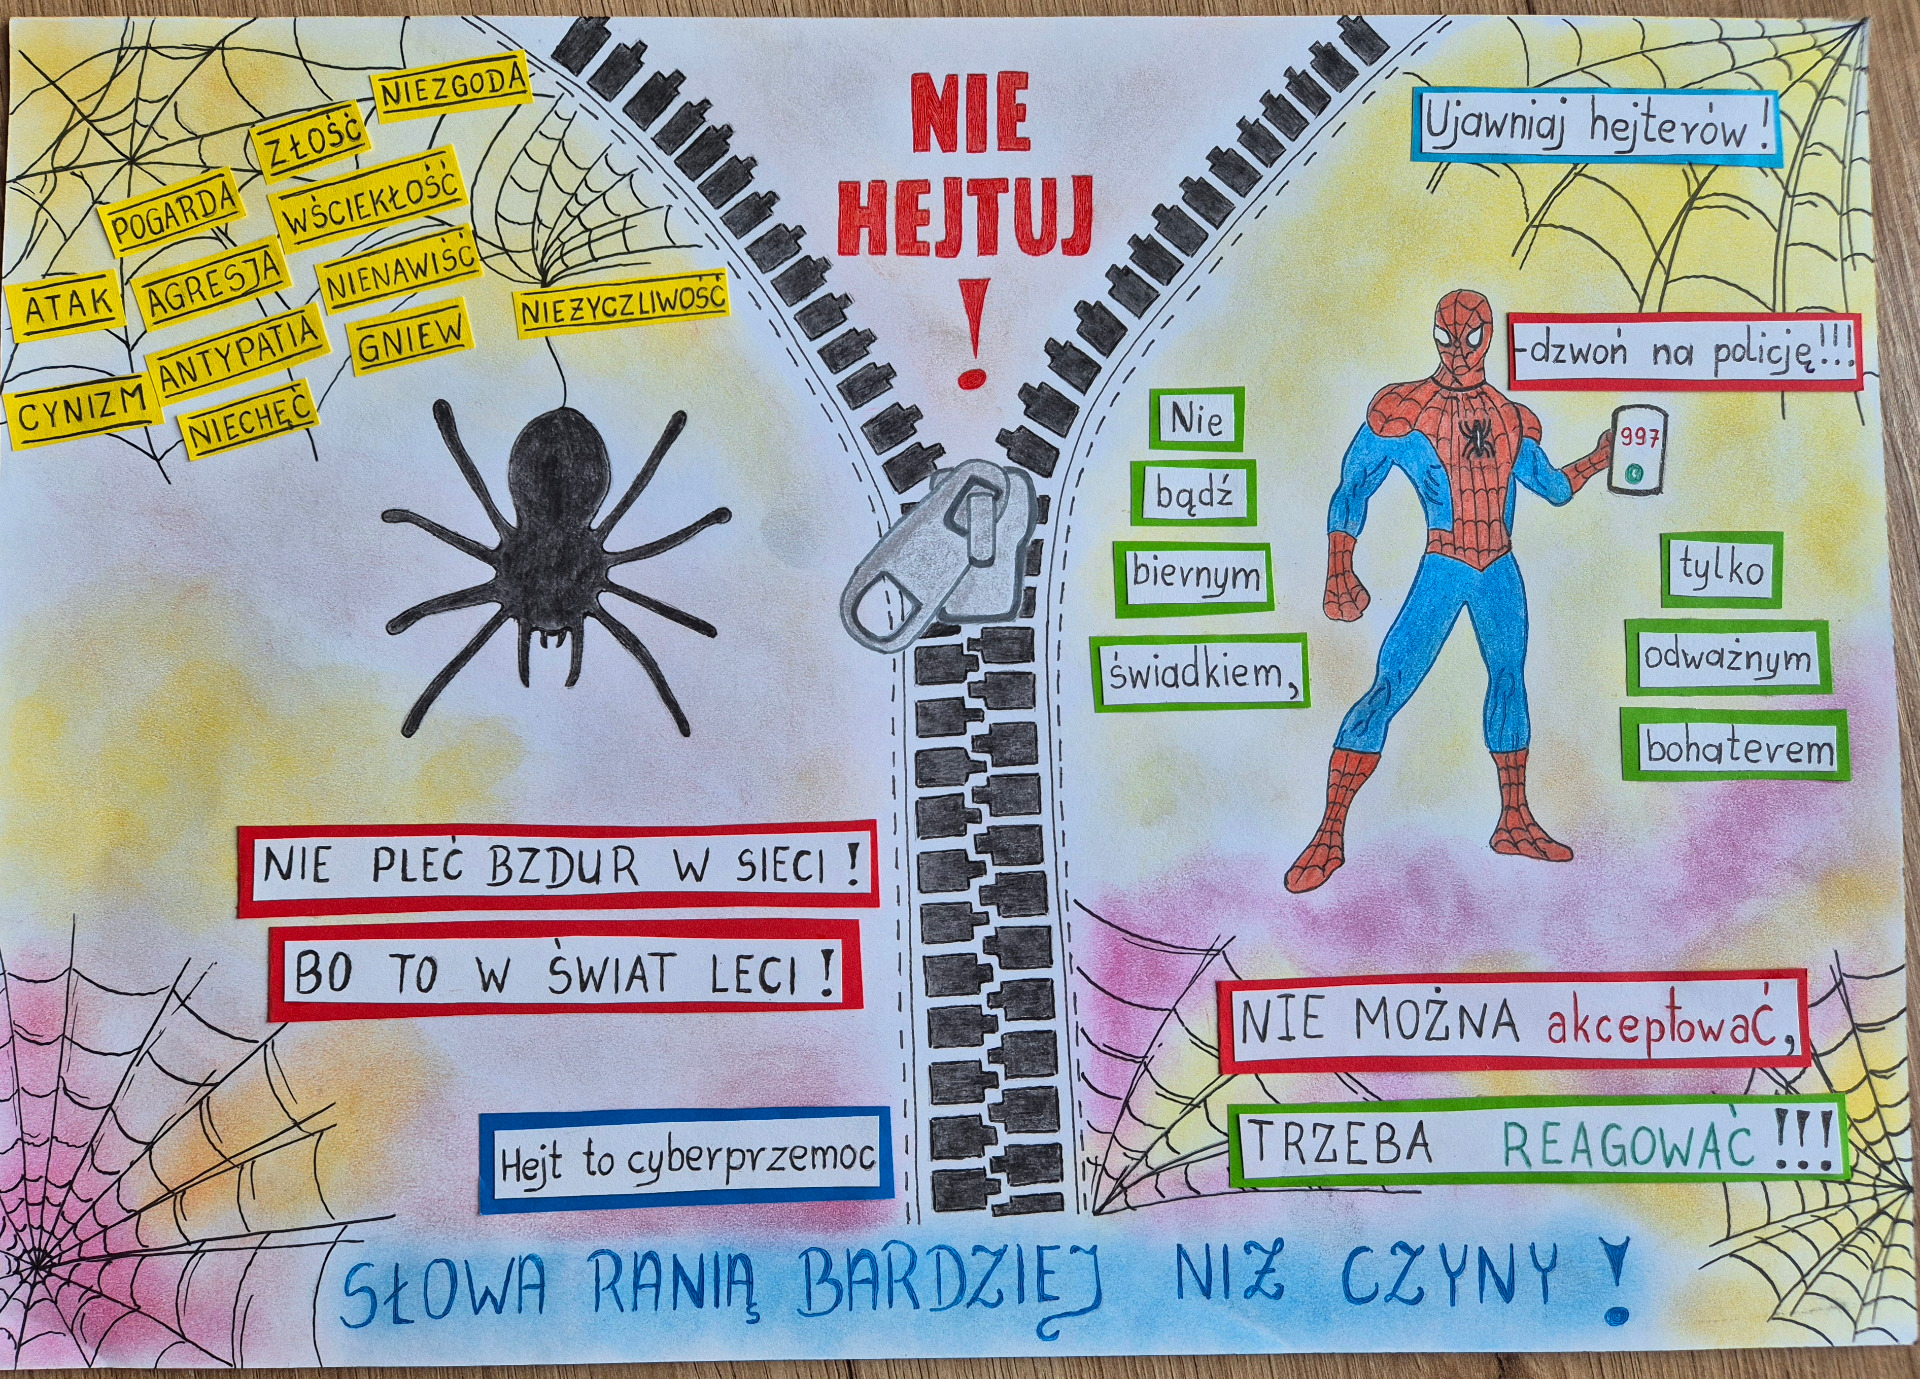 NIE
HEJTUJ
!
NIEZGODA
ZŁOŚĆ
POGARDA
WŚCIEKŁOŚĆ
ATAK
AGRESJA
NIENAWIŚĆ
NIEŻYCZLIWOŚĆ
ANTYPATIA
GNIEW
CYNIZM
NIECHĘĆ
NIE PLEĆ BZDUR W SIECI!
BO TO W ŚWIAT LECI!
Hejt to cyberprzemoc
Ujawniaj hejterów!
-dzwoń na policję!!!
997
Nie
bądź
biernym
świadkiem,
tylko
odważnym
bohaterem
NIE MOŻNA akceptować,
TRZEBA REAGOWAĆ!!!
SŁOWA RANIĄ BARDZIEJ NIŻ CZYNY!